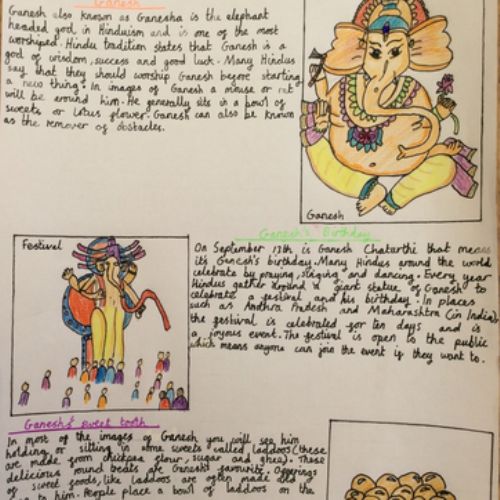 Ganesh
Ganesh also known as Ganesha is the elephant
headed god in Hinduism and is one of the most
worshiped. Hindu tradition states that Ganesh is a
god of wisdom, success and good luck. Many Hindus
say that they should worship Ganesh before starting
a new thing. In images of Ganesh a mouse or rat
will be around him. He generally sits in a bowl of
sweets or lotus flower. Ganesh can also be known
as the remover of obstacles.
Ganesh
Ganesh's Birthday
On September 13th is Ganesh Chaturthi that means
it's Ganesh's birthday. Many Hindus around the world
celebrate by praying, singing and dancing. Every year
Hindus gather around a giant statue of Ganesh to
celebrate a festival and his birthday. In places
such as Andhra Pradesh and Maharashtra (in India),
the festival is celebrated for ten days and is
a joyous event. The festival is open to the public
which means anyone can join the event if they want to.
Festival
Ganesh's sweet tooth
In most of the images of Ganesh you will see him
holding or sitting in some sweets called laddoos (these
are made from chickpea flour, sugar and ghee). These
delicious round treats are Ganesh's favourite. Offerings
of sweet foods, like laddoos are often made
to him. People place a bowl of laddoos on the